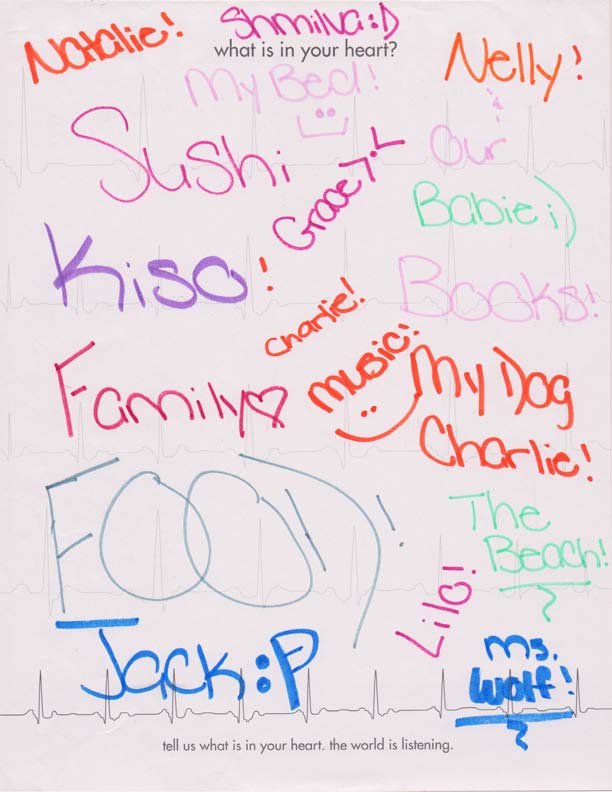 Shmilva :D
Natalie!
what is in your heart?
Nelly!
My Bed!
Sushi
& Our
Grace T. L
Babie ;)
Kiso!
Books!
Charlie!
music!
My Dog
Charlie!
Family
FOOD!
The
Beach!
Lila!
Jack :P
Ms.
Wolf!
tell us what is in your heart. the world is listening.